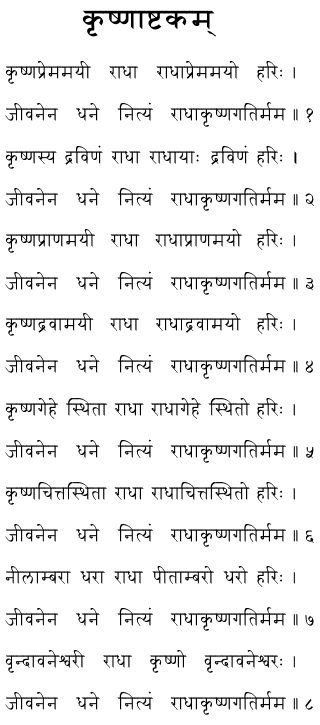 कृष्णाष्टकम्
कृष्णप्रेममयी राधा राधाप्रेममयो हरिः ।
जीवनेन धने नित्यं राधाकृष्णगतिर्मम ॥ १
कृष्णस्य द्रविणं राधा राधायाः द्रविणं हरिः ।
जीवनेन धने नित्यं राधाकृष्णगतिर्मम ॥ २
कृष्णप्राणमयी राधा राधाप्राणमयो हरिः ।
जीवनेन धने नित्यं राधाकृष्णगतिर्मम ॥ ३
कृष्णद्रवामयी राधा राधाद्रवामयो हरिः ।
जीवनेन धने नित्यं राधाकृष्णगतिर्मम ॥ ४
कृष्णगेहे स्थिता राधा राधागेहे स्थितो हरिः ।
जीवनेन धने नित्यं राधाकृष्णगतिर्मम ॥ ५
कृष्णचित्तस्थिता राधा राधाचित्तस्थितो हरिः ।
जीवनेन धने नित्यं राधाकृष्णगतिर्मम ॥ ६
नीलाम्बरा धरा राधा पीताम्बरो धरो हरिः ।
जीवनेन धने नित्यं राधाकृष्णगतिर्मम ॥ ७
वृन्दावनेश्वरी राधा कृष्णो वृन्दावनेश्वरः ।
जीवनेन धने नित्यं राधाकृष्णगतिर्मम ॥ ८